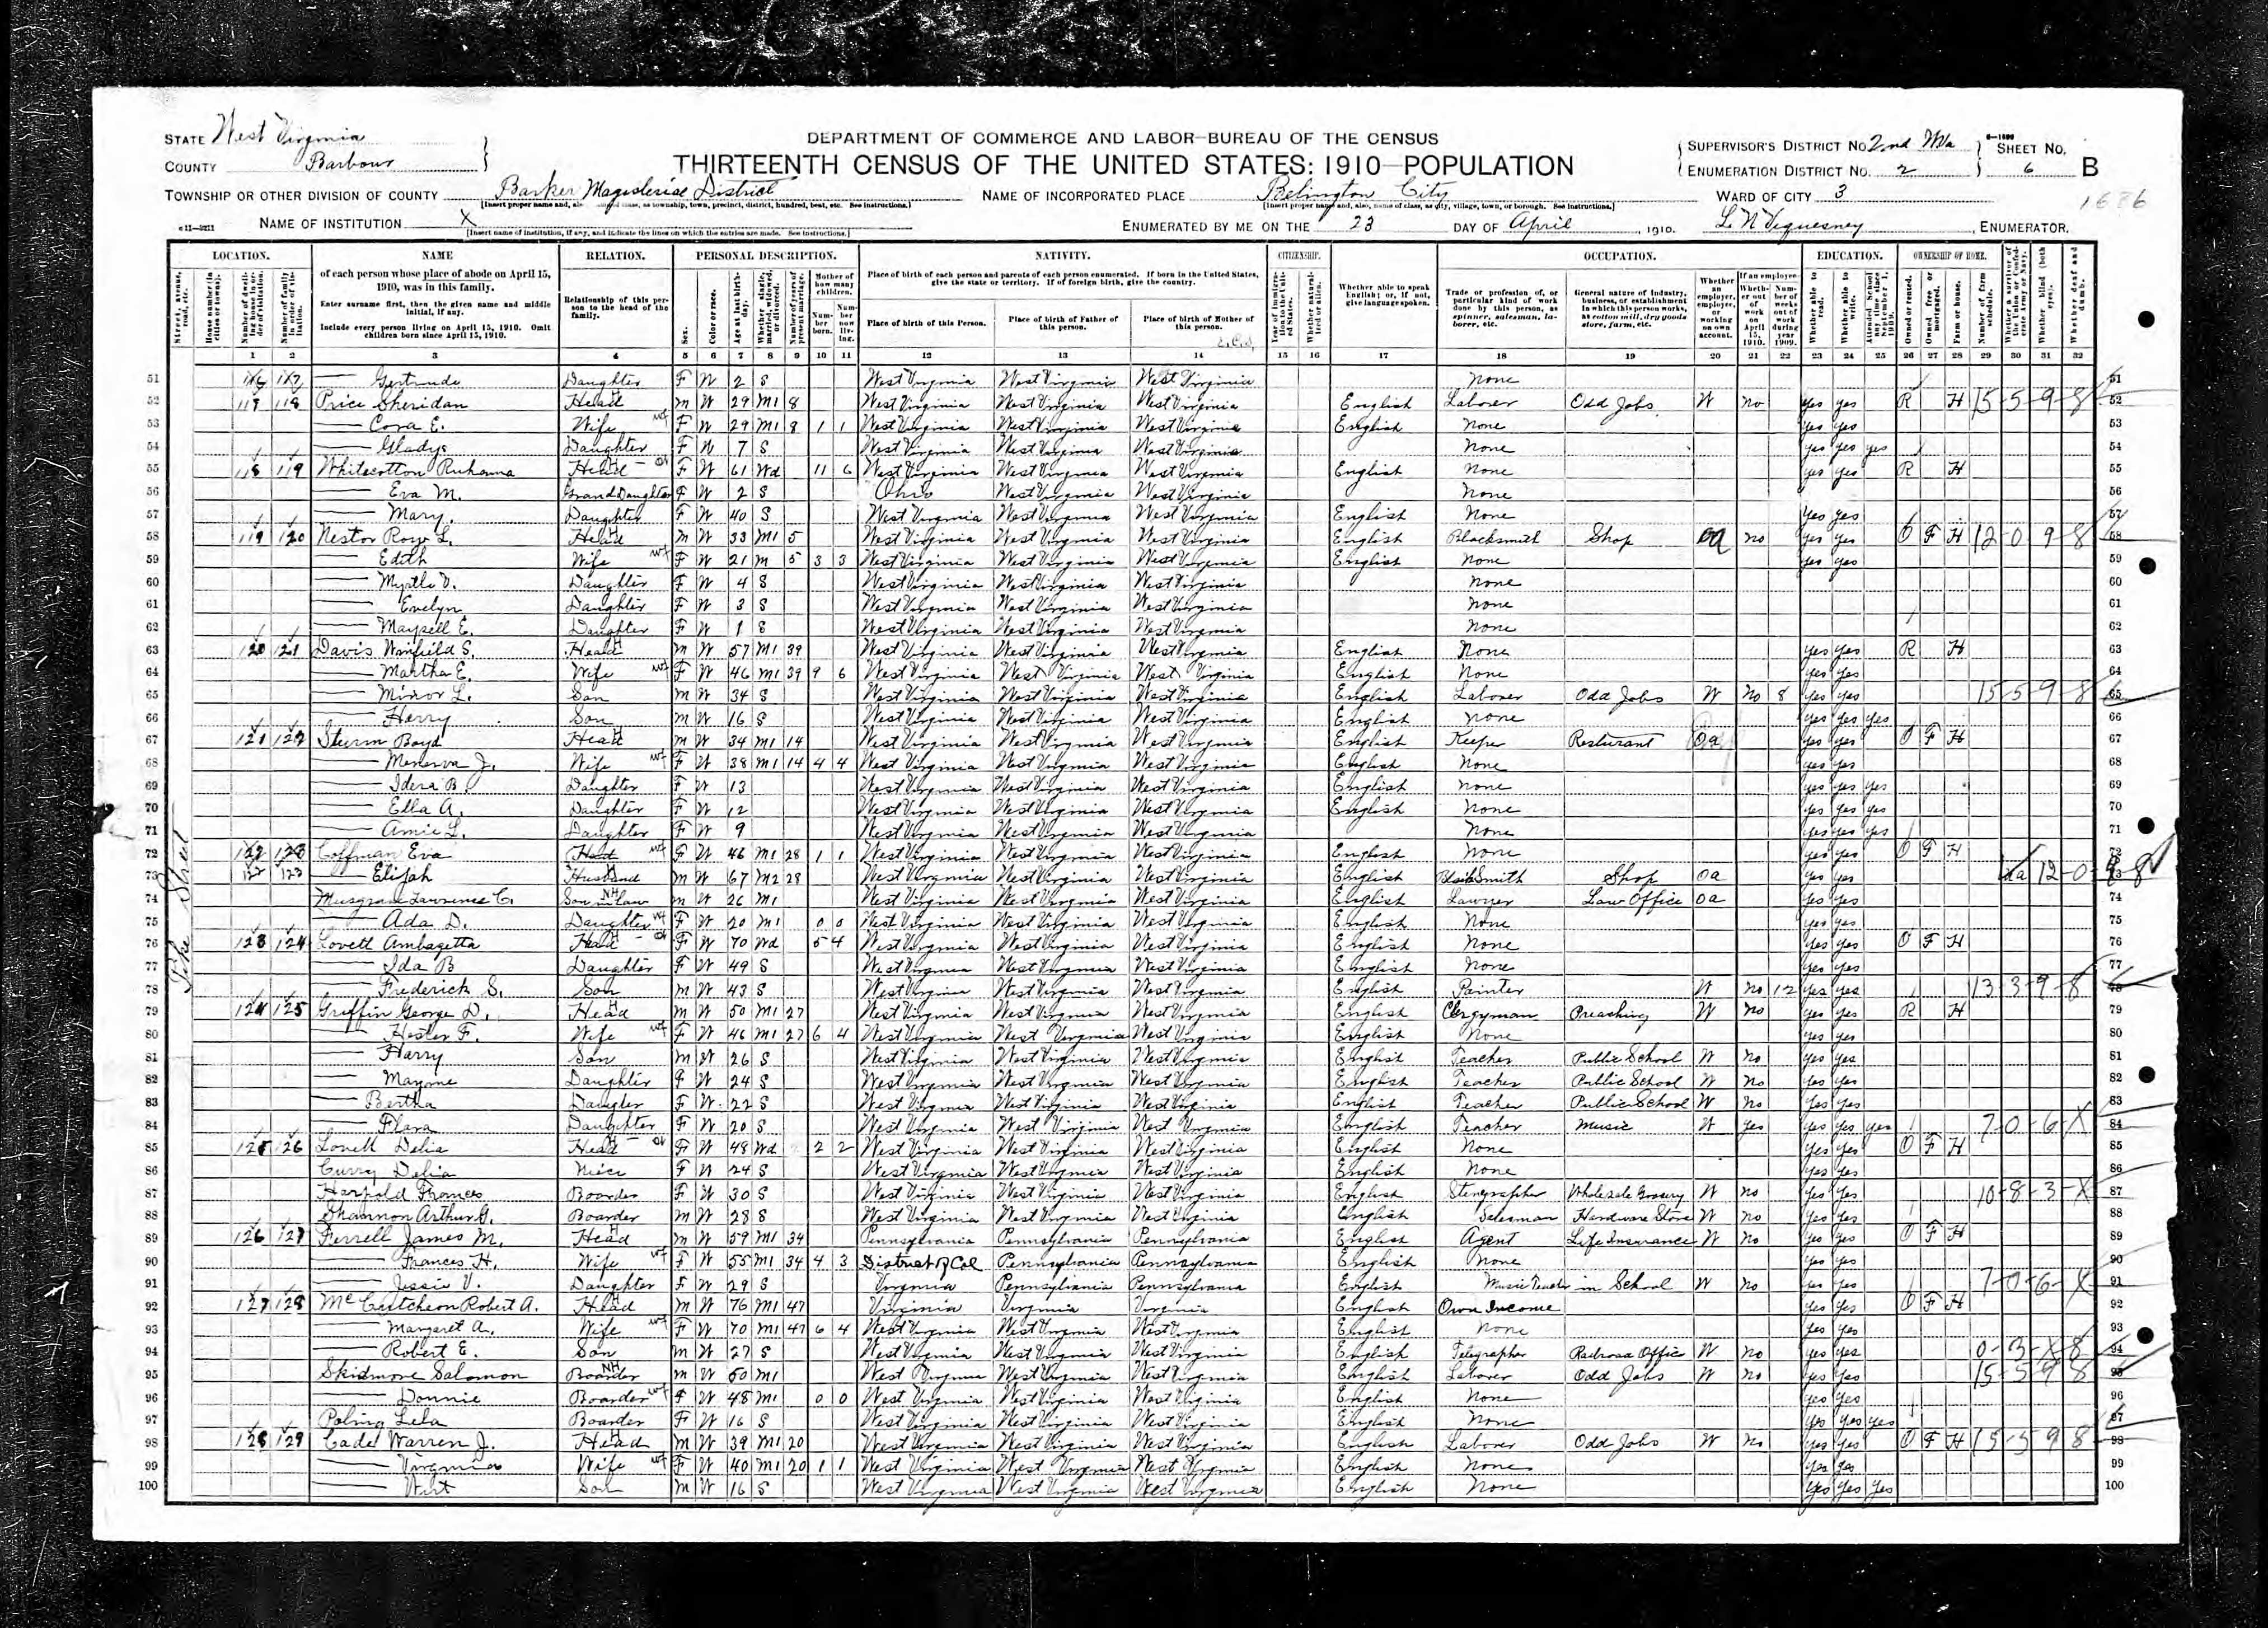 STATE West Virginia
COUNTY Barbour
DEPARTMENT OF COMMERCE AND LABOR—BUREAU OF THE CENSUS
THIRTEENTH CENSUS OF THE UNITED STATES: 1910—POPULATION
SUPERVISOR'S DISTRICT No. 2nd WVa
ENUMERATION DISTRICT No. 2
SHEET No. 6 B
1686
TOWNSHIP OR OTHER DIVISION OF COUNTY Barker Magisterial District
NAME OF INCORPORATED PLACE Belington City
WARD OF CITY 3
NAME OF INSTITUTION X
ENUMERATED BY ME ON THE 23 DAY OF April, 1910. L. N Viquesney, ENUMERATOR.
LOCATION. NAME RELATION. PERSONAL DESCRIPTION. NATIVITY. CITIZENSHIP. OCCUPATION. EDUCATION. OWNERSHIP OF HOME.
of each person whose place of abode on April 15, 1910, was in this family.
Enter surname first, then the given name and middle initial, if any.
Include every person living on April 15, 1910. Omit children born since April 15, 1910.
Relationship of this person to the head of the family.
Place of birth of each person and parents of each person enumerated. If born in the United States, give the state or territory. If of foreign birth, give the country.
Place of birth of this Person. Place of birth of Father of this person. Place of birth of Mother of this person.
Whether able to speak English; or, if not, give language spoken.
1 2 3 4 5 6 7 8 9 10 11 12 13 14 15 16 17 18 19 20 21 22 23 24 25 26 27 28 29 30 31 32
Pike Street
51 — Gertrude Daughter F W 2 S West Virginia West Virginia West Virginia None
52 117 118 Price Sheridan Head M W 29 M1 8 West Virginia West Virginia West Virginia English Laborer Odd Jobs W No yes yes R H 15-5-9-8
53 — Cora E. Wife F W 29 M1 8 1 1 West Virginia West Virginia West Virginia English None yes yes
54 — Gladys Daughter F W 7 S West Virginia West Virginia West Virginia None yes yes yes
55 118 119 Whitecotton Ruhama Head F W 61 Wd 11 6 West Virginia West Virginia West Virginia English None yes yes R H
56 — Eva M. GrandDaughter F W 2 S Ohio West Virginia West Virginia None
57 — Mary. Daughter F W 40 S West Virginia West Virginia West Virginia English None yes yes
58 119 120 Nestor Roy L. Head M W 33 M1 5 West Virginia West Virginia West Virginia English Blacksmith Shop oa no yes yes O F H 12-0-9-8
59 — Edith Wife F W 21 M 5 3 3 West Virginia West Virginia West Virginia English None yes yes
60 — Myrtle V. Daughter F W 4 S West Virginia West Virginia West Virginia None
61 — Evelyn Daughter F W 3 S West Virginia West Virginia West Virginia None
62 — Maysell E. Daughter F W 1 S West Virginia West Virginia West Virginia None
63 120 121 Davis Winfield S. Head M W 57 M1 39 West Virginia West Virginia West Virginia English None yes yes R H
64 — Martha E. Wife F W 46 M1 39 9 6 West Virginia West Virginia West Virginia English None yes yes
65 — L. Son M W 34 S West Virginia West Virginia West Virginia English Laborer Odd Jobs W No 8 yes yes 15-5-9-8
66 — Harry Son M W 16 S West Virginia West Virginia West Virginia English None yes yes yes
67 121 122 Sturm Boyd Head M W 34 M1 14 West Virginia West Virginia West Virginia English Keeper Resturant Oa yes yes O F H
68 — Menerva J. Wife F W 38 M1 14 4 4 West Virginia West Virginia West Virginia English None yes yes
69 — Idera B. Daughter F W 13 West Virginia West Virginia West Virginia English None yes yes yes
70 — Ella A. Daughter F W 12 West Virginia West Virginia West Virginia English None yes yes yes
71 — Amie L. Daughter F W 9 West Virginia West Virginia West Virginia None yes yes yes
72 122 123 Coffman Eva Head F W 46 M1 28 1 1 West Virginia West Virginia West Virginia English None yes yes O F H
73 122 123 — Elijah Husband M W 67 M2 28 West Virginia West Virginia West Virginia English BlackSmith Shop oa yes yes 12-0-9-8
74 Musgrave Lawrence C. Son in law M W 26 M1 West Virginia West Virginia West Virginia English Lawyer Law Office oa yes yes
75 — Ada D. Daughter F W 20 M1 0 0 West Virginia West Virginia West Virginia English None yes yes
76 123 124 Lovett Ambazetta Head F W 70 Wd 5 4 West Virginia West Virginia West Virginia English None yes yes O F H
77 — Ida B Daughter F W 49 S West Virginia West Virginia West Virginia English None yes yes
78 — Frederick S. Son M W 43 S West Virginia West Virginia West Virginia English Painter W No 12 yes yes 13-3-9-8
79 124 125 Griffin George D. Head M W 50 M1 27 West Virginia West Virginia West Virginia English Clergyman Preaching W No yes yes R H
80 — Hester F. Wife F W 46 M1 27 6 4 West Virginia West Virginia West Virginia English None yes yes
81 — Harry Son M W 26 S West Virginia West Virginia West Virginia English Teacher Public School W No yes yes
82 — Mayme Daughter F W 24 S West Virginia West Virginia West Virginia English Teacher Public School W No yes yes
83 — Bertha Daughter F W 22 S West Virginia West Virginia West Virginia English Teacher Public School W No yes yes
84 — Flara Daughter F W 20 S West Virginia West Virginia West Virginia English Teacher Music W yes yes yes yes 7-0-6-X
85 125 126 Lovett Delia Head F W 48 Wd 2 2 West Virginia West Virginia West Virginia English None yes yes O F H
86 Curry Delia Niece F W 24 S West Virginia West Virginia West Virginia English None yes yes
87 Harpold Frances Boarder F W 30 S West Virginia West Virginia West Virginia English Stenographer Wholesale Grocery W No yes yes 10-8-3-X
88 Shannon Arthur G. Boarder M W 28 S West Virginia West Virginia West Virginia English Salesman Hardware Store W No yes yes
89 126 127 Ferrell James M. Head M W 59 M1 34 Pennsylvania Pennsylvania Pennsylvania English Agent Life Insurance W No yes yes O F H
90 — Frances H. Wife F W 55 M1 34 4 3 District of Col Pennsylvania Pennsylvania English None yes yes
91 — Jessie V. Daughter F W 29 S Virginia Pennsylvania Pennsylvania English Music Teacher in School W No yes yes 7-0-6-X
92 127 128 McCutcheon Robert A. Head M W 76 M1 47 Virginia Virginia Virginia English Own Income yes yes O F H
93 — Margaret A. Wife F W 70 M1 47 6 4 West Virginia West Virginia West Virginia English None yes yes
94 — Robert E. Son M W 27 S West Virginia West Virginia West Virginia English Telegrapher Railroad Office W No yes yes 0-3-X-8
95 Skidmore Salomon Boarder M W 50 M1 West Virginia West Virginia West Virginia English Laborer Odd Jobs W No yes yes 15-5-9-8
96 — Donnie Boarder F W 48 M1 0 0 West Virginia West Virginia West Virginia English None yes yes
97 Poling Lela Boarder F W 16 S West Virginia West Virginia West Virginia English None yes yes yes
98 128 129 Cade Warren J. Head M W 39 M1 20 West Virginia West Virginia West Virginia English Laborer Odd Jobs W No yes yes O F H 15-5-9-8
99 — Virginia Wife F W 40 M1 20 1 1 West Virginia West Virginia West Virginia English None yes yes
100 — Wirt Son M W 16 S West Virginia West Virginia West Virginia English None yes yes yes